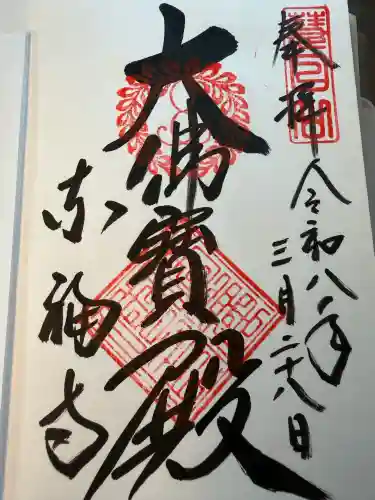 奉拝
令和八年
三月二十八日
大佛寳殿
東福寺